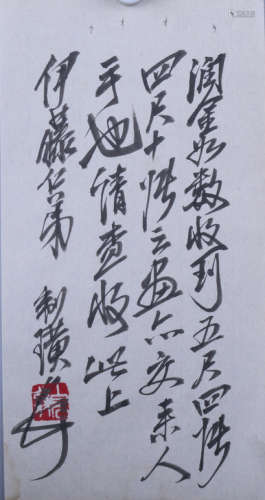 润金如数收到五尺四幅
四尺十幅之画亦交来人
手也请查收 此上
伊藤仁弟 制